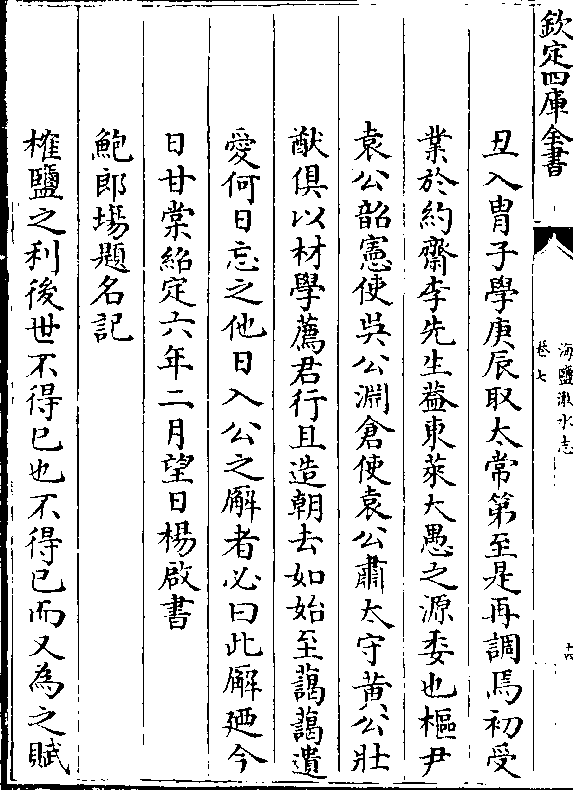 欽定四庫全書
海鹽澉水志
卷七
十六
丑入胄子學庚辰取太常第至是再調焉初受
業於約齋李先生葢東萊大愚之源委也樞尹
袁公韶憲使吳公淵倉使袁公肅太守黄公壯
猷俱以材學薦君行且造朝去如始至藹藹遺
愛何日忘之他日入公之廨者必曰此廨廼今
日甘棠紹定六年二月望日楊啟書
鮑郎塲題名記
榷鹽之利後世不得已也不得已而又為之賦